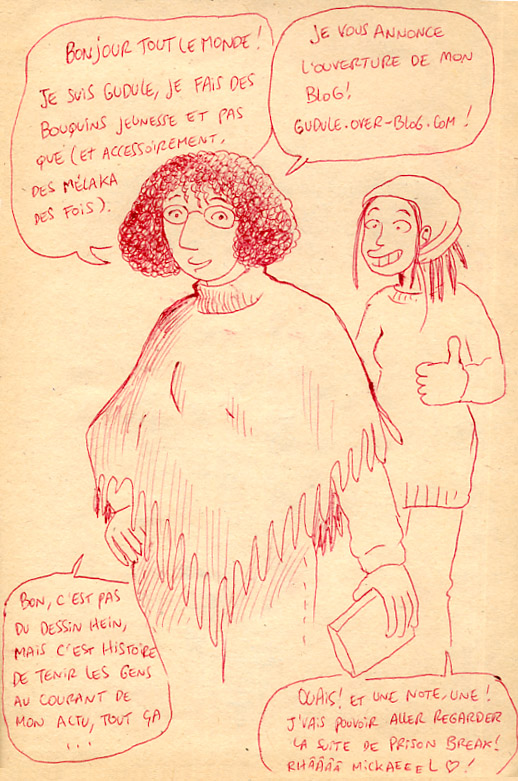 BONJOUR TOUT LE MONDE !
JE SUIS GUDULE, JE FAIS DES
BOUQUINS JEUNESSE ET PAS
QUE (ET ACCESSOIREMENT,
DES MÉLAKA
DES FOIS).
JE VOUS ANNONCE
L'OUVERTURE DE MON
BLOG!
GUDULE.OVER-BLOG.COM !
BON, C'EST PAS
DU DESSIN HEIN,
MAIS C'EST HISTOIRE
DE TENIR LES GENS
AU COURANT DE
MON ACTU, TOUT ÇA
...
OUAIS! ET UNE NOTE, UNE !
J'VAIS POUVOIR ALLER REGARDER
LA SUITE DE PRISON BREAK!
RHÂÂÂÂ MICKAEEEL ♡ !